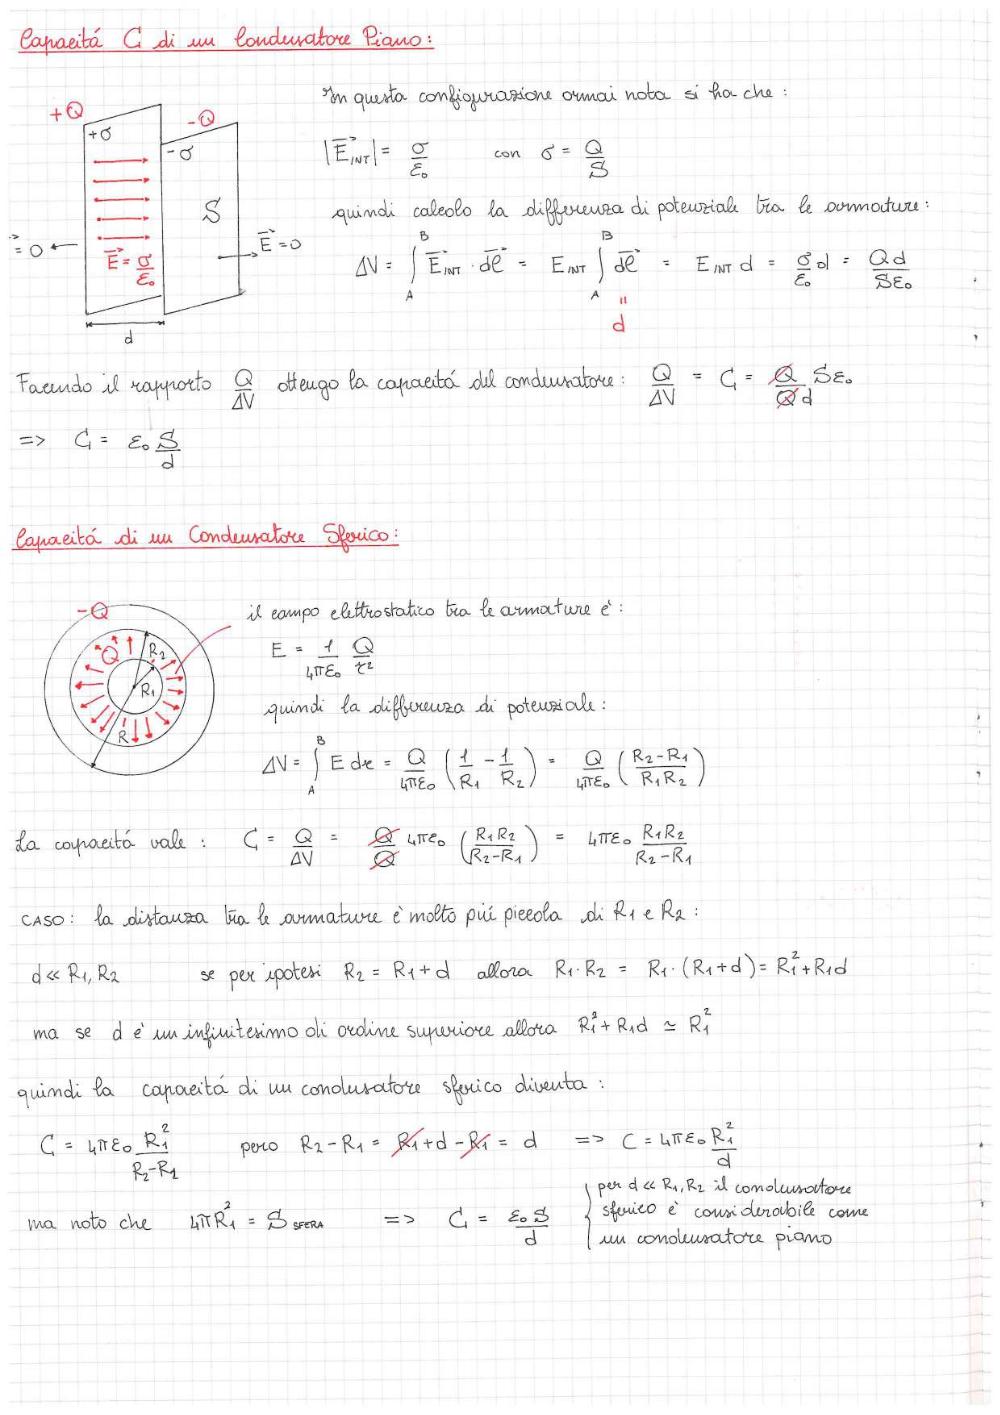 Capacitá C di un Condensatore Piano:
In questa configurazione ormai nota si ha che:
+Q
-Q
+σ
-σ
S
= 0
E⃗ = σ/ε₀
E⃗ = 0
d
|E⃗_INT| = σ/ε₀ con σ = Q/S
quindi calcolo la differenza di potenziale tra le armature:
ΔV = ∫_A^B E⃗_INT · dl⃗ = E_INT ∫_A^B dl⃗ = E_INT d = σ/ε₀ d = Qd/Sε₀
"
d
Facendo il rapporto Q/ΔV ottengo la capacitá del condensatore: Q/ΔV = C = Q/Qd Sε₀
=> C = ε₀ S/d
Capacitá di un Condensatore Sferico:
-Q
Q
R₂
R₁
R
il campo elettrostatico tra le armature è:
E = 1/4πε₀ Q/r²
quindi la differenza di potenziale:
ΔV = ∫_A^B E dr = Q/4πε₀ (1/R₁ - 1/R₂) = Q/4πε₀ (R₂-R₁/R₁R₂)
La capacitá vale: C = Q/ΔV = Q/Q 4πε₀ (R₁R₂/R₂-R₁) = 4πε₀ R₁R₂/R₂-R₁
CASO: la distanza tra le armature è molto piú piccola di R₁ e R₂:
d << R₁, R₂ se per ipotesi R₂ = R₁ + d allora R₁·R₂ = R₁·(R₁+d) = R₁² + R₁d
ma se d é un infinitesimo di ordine superiore allora R₁² + R₁d ≃ R₁²
quindi la capacitá di un condensatore sferico diventa:
C = 4πε₀ R₁²/R₂-R₁ pero R₂-R₁ = R₁+d-R₁ = d => C = 4πε₀ R₁²/d
ma noto che 4πR₁² = S SFERA => C = ε₀S/d
per d << R₁, R₂ il condensatore
sferico è considerabile come
un condensatore piano